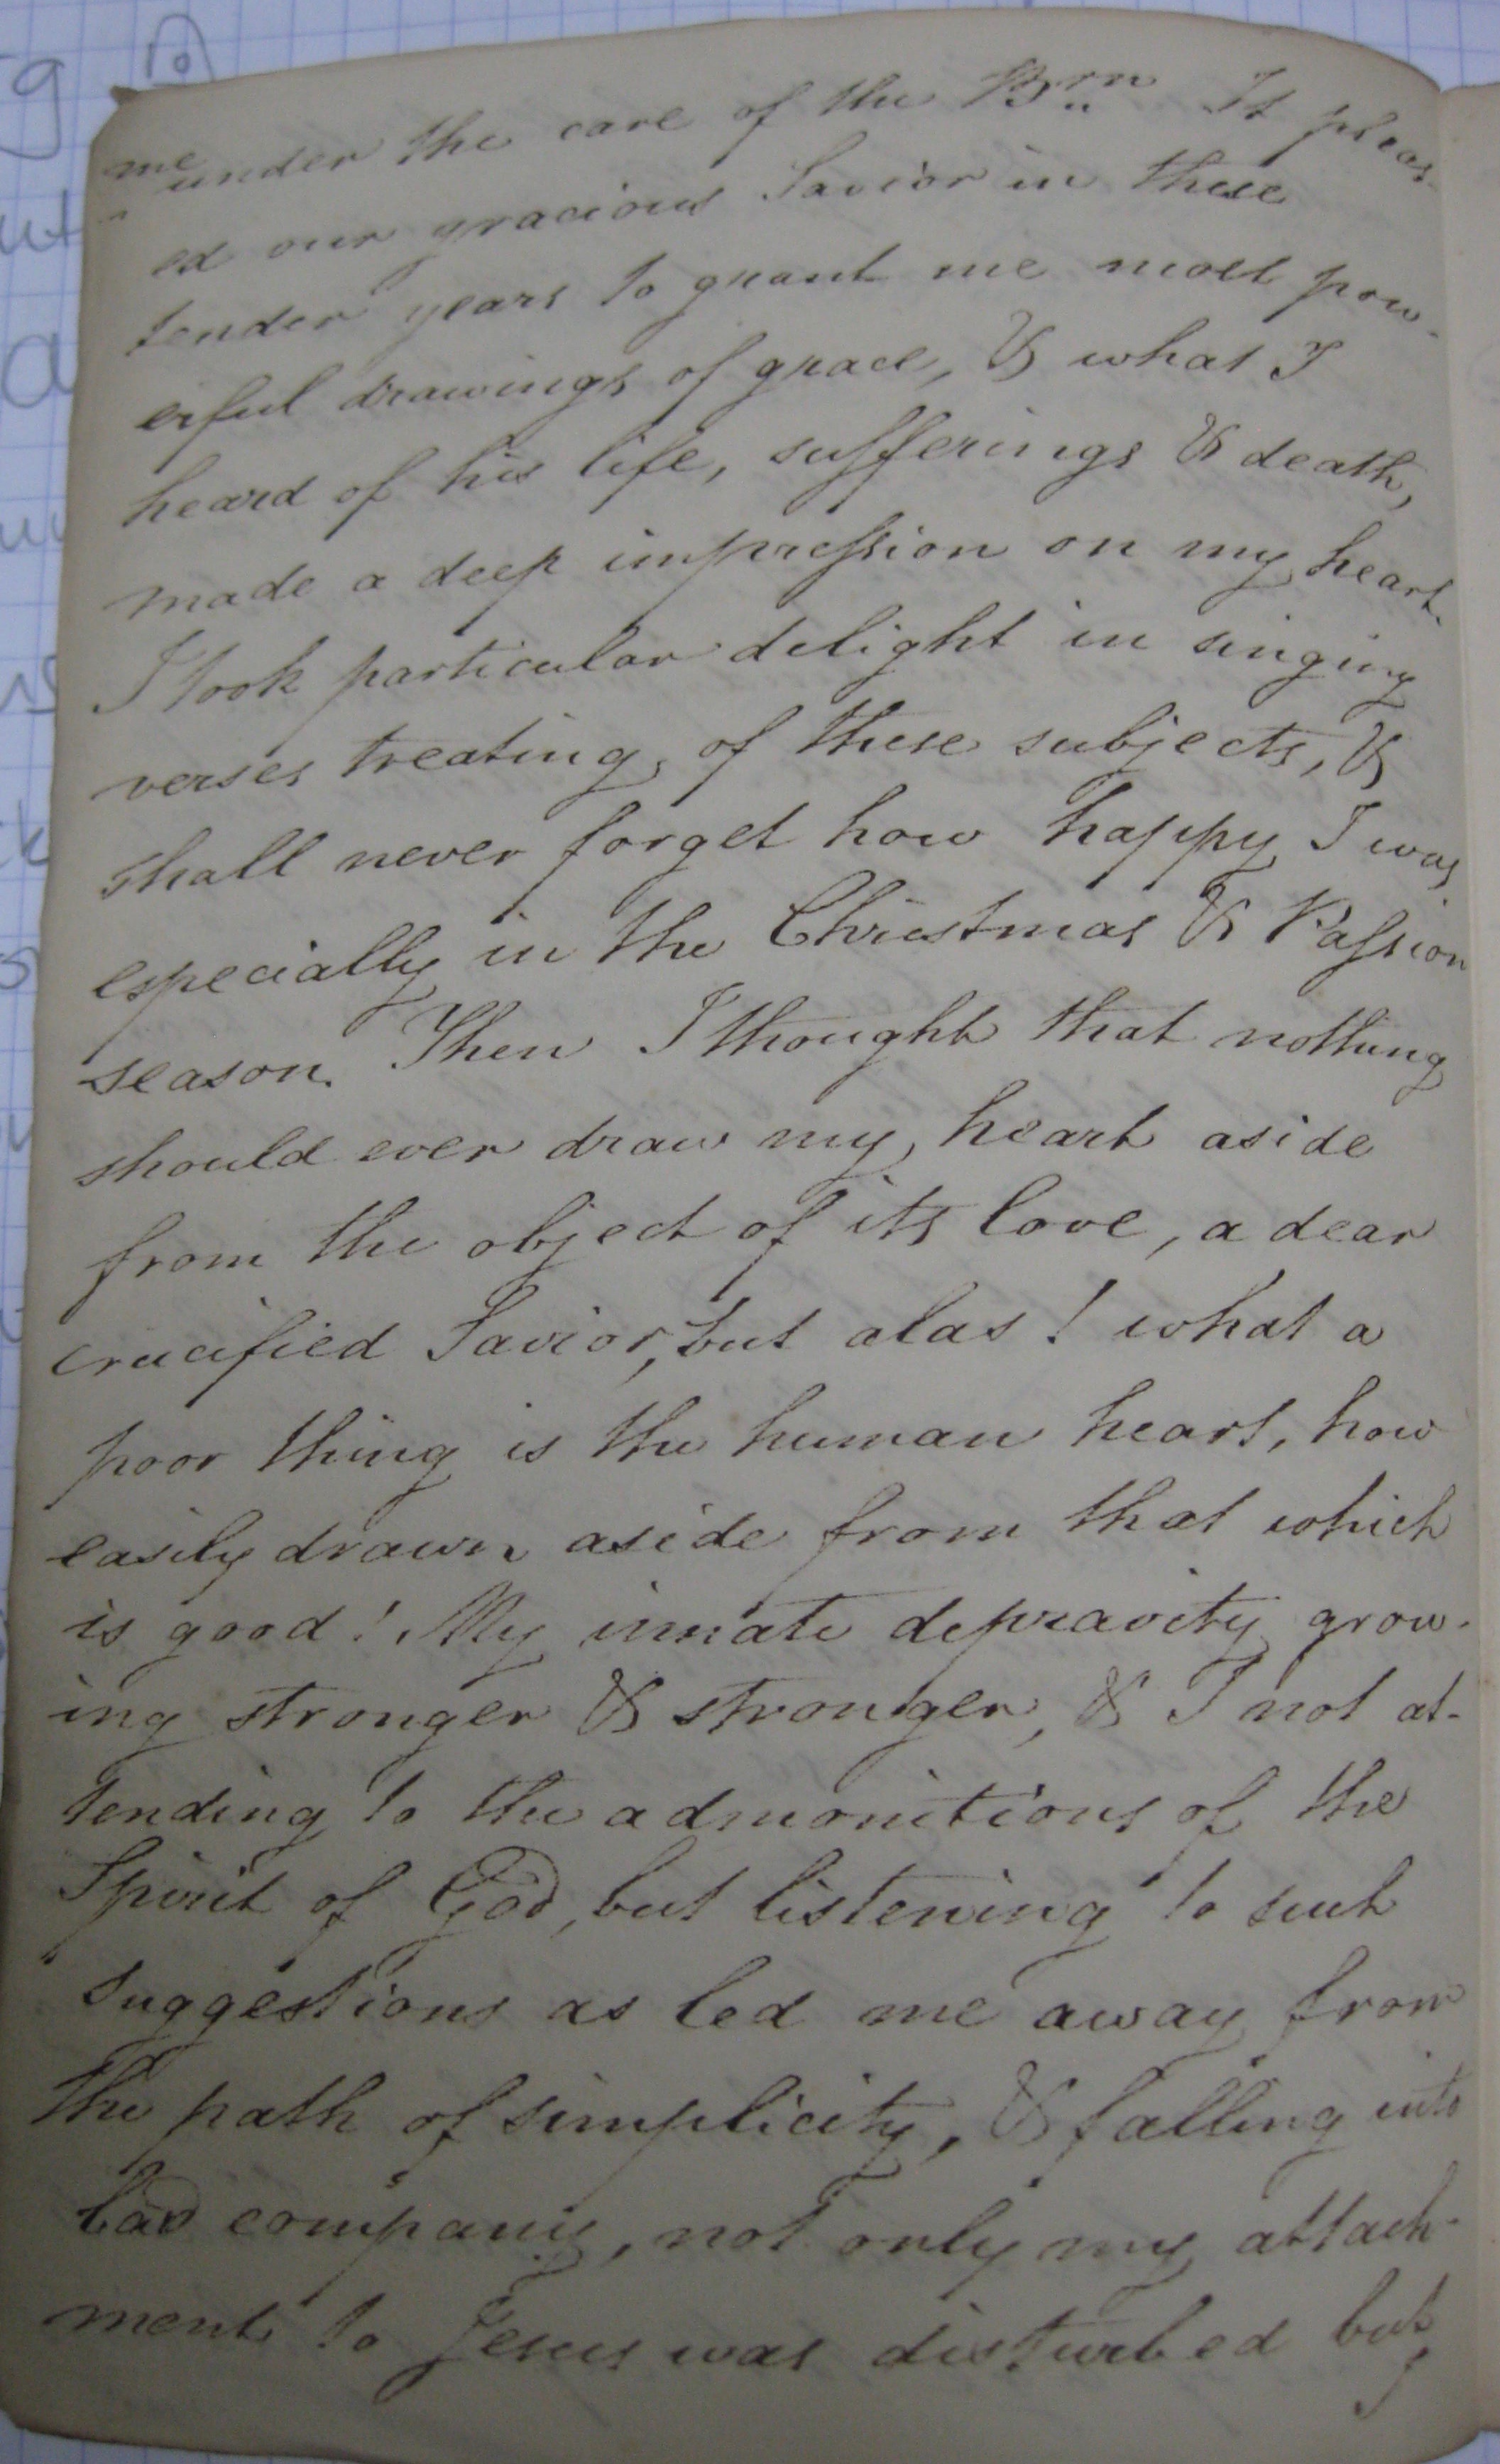 me under the care of the Brn It pleas-
ed our gracious Savior in these
tender years to grant me most pow-
erful drawings of grace, & what I
heard of his life, sufferings & death,
made a deep impression on my heart.
I took particular delight in singing
verses treating of these subjects, &
shall never forget how happy I was
especially in the Christmas & Passion
season. Then I thought that nothing
should ever draw my heart aside
from the object of its love, a dear
crucified Savior, but alas! what a
poor thing is the human heart, how
easily drawn aside from that which
is good! My innate depravity grow-
ing stronger & stronger, & I not at-
tending to the admonitions of the
Spirit of God, but listening to such
suggestions as led me away from
the path of simplicity, & falling into
bad company, not only my attach-
ment to Jesus was disturbed but